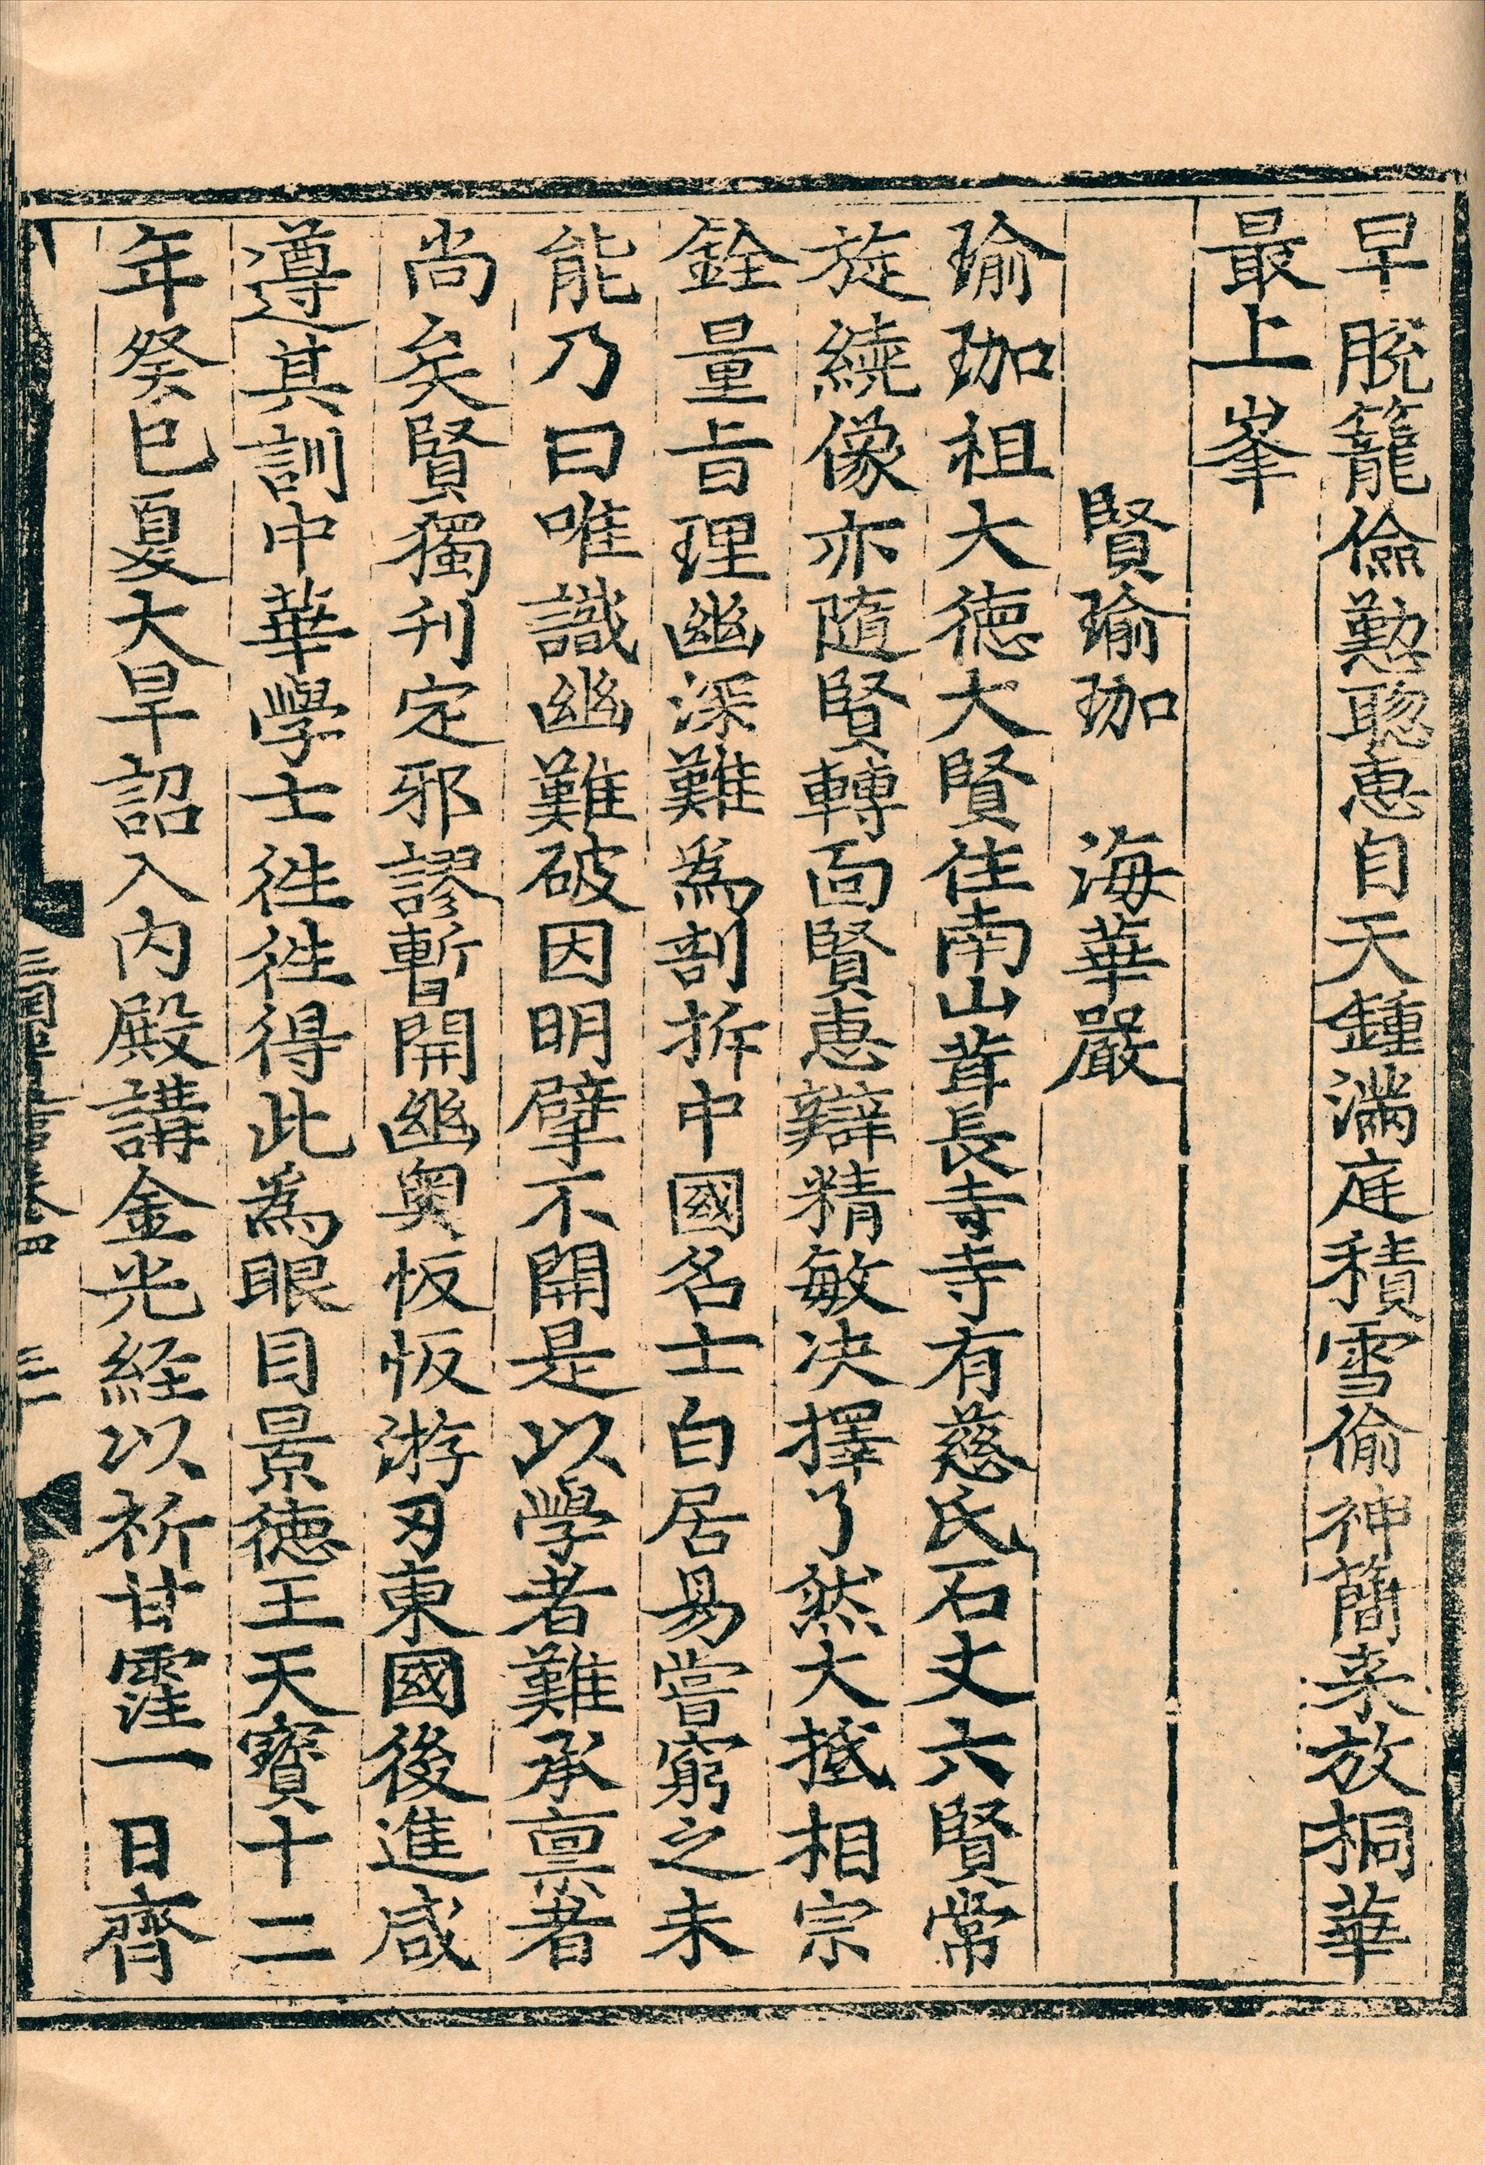 早脫籠儉懃聦恵自天鍾滿庭積雪偷神簡来放桐華
最上峯
賢瑜珈　海華嚴
瑜珈祖大徳大賢住南山茸長寺寺有慈氏石丈六賢常
旋繞像亦隨賢轉靣賢恵辯精敏决擇了然大抵相宗
銓量旨理幽深難為剖拆中國名士白居易嘗窮之未
能乃曰唯識幽難破因明擘不開是以學者難承禀者
尚矣賢獨刋定邪謬暫開幽奧恢恢游刃東國後進咸
遵其訓中華學士徃徃得此為眼目景徳王天寶十二
年癸巳夏大旱詔入内殿講金光経以祈甘霔一日齊